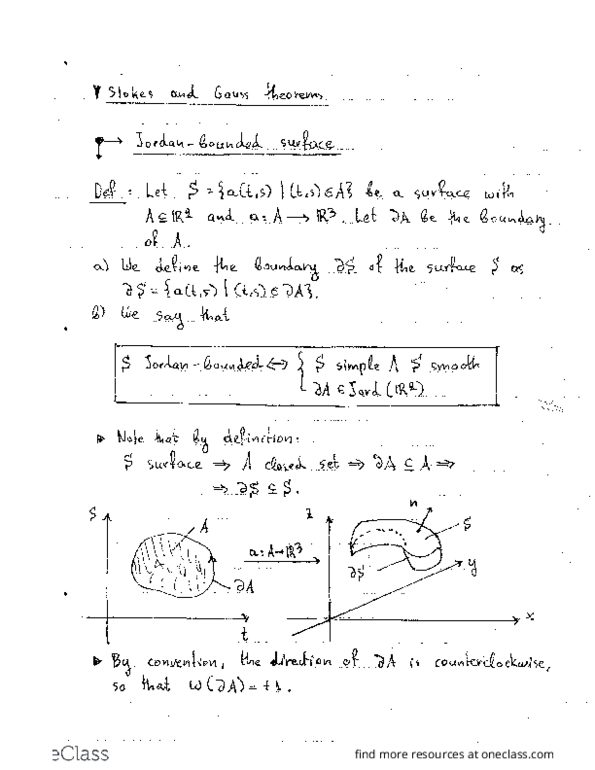 ▼ Stokes and Gauss theorems
Jordan-bounded surface
Def : Let S = {a(t,s) | (t,s)∈A} be a surface with
A⊆ℝ² and a: A → ℝ³. Let ∂A be the boundary
of A.
a) We define the boundary ∂S of the surface S as
∂S = {a(t,s) | (t,s)∈∂A}.
b) We say that
S Jordan-bounded ⟺ { S simple ∧ S smooth
∂A ∈ Jord (ℝ²)
► Note that by definition:
S surface ⇒ A closed set ⇒ ∂A ⊆ A ⇒
⇒ ∂S ⊆ S.
S A z n S
a: A→ℝ³
∂A ∂S y
t x
► By convention, the direction of ∂A is counterclockwise,
so that w(∂A) = +1.
eClass
find more resources at oneclass.com